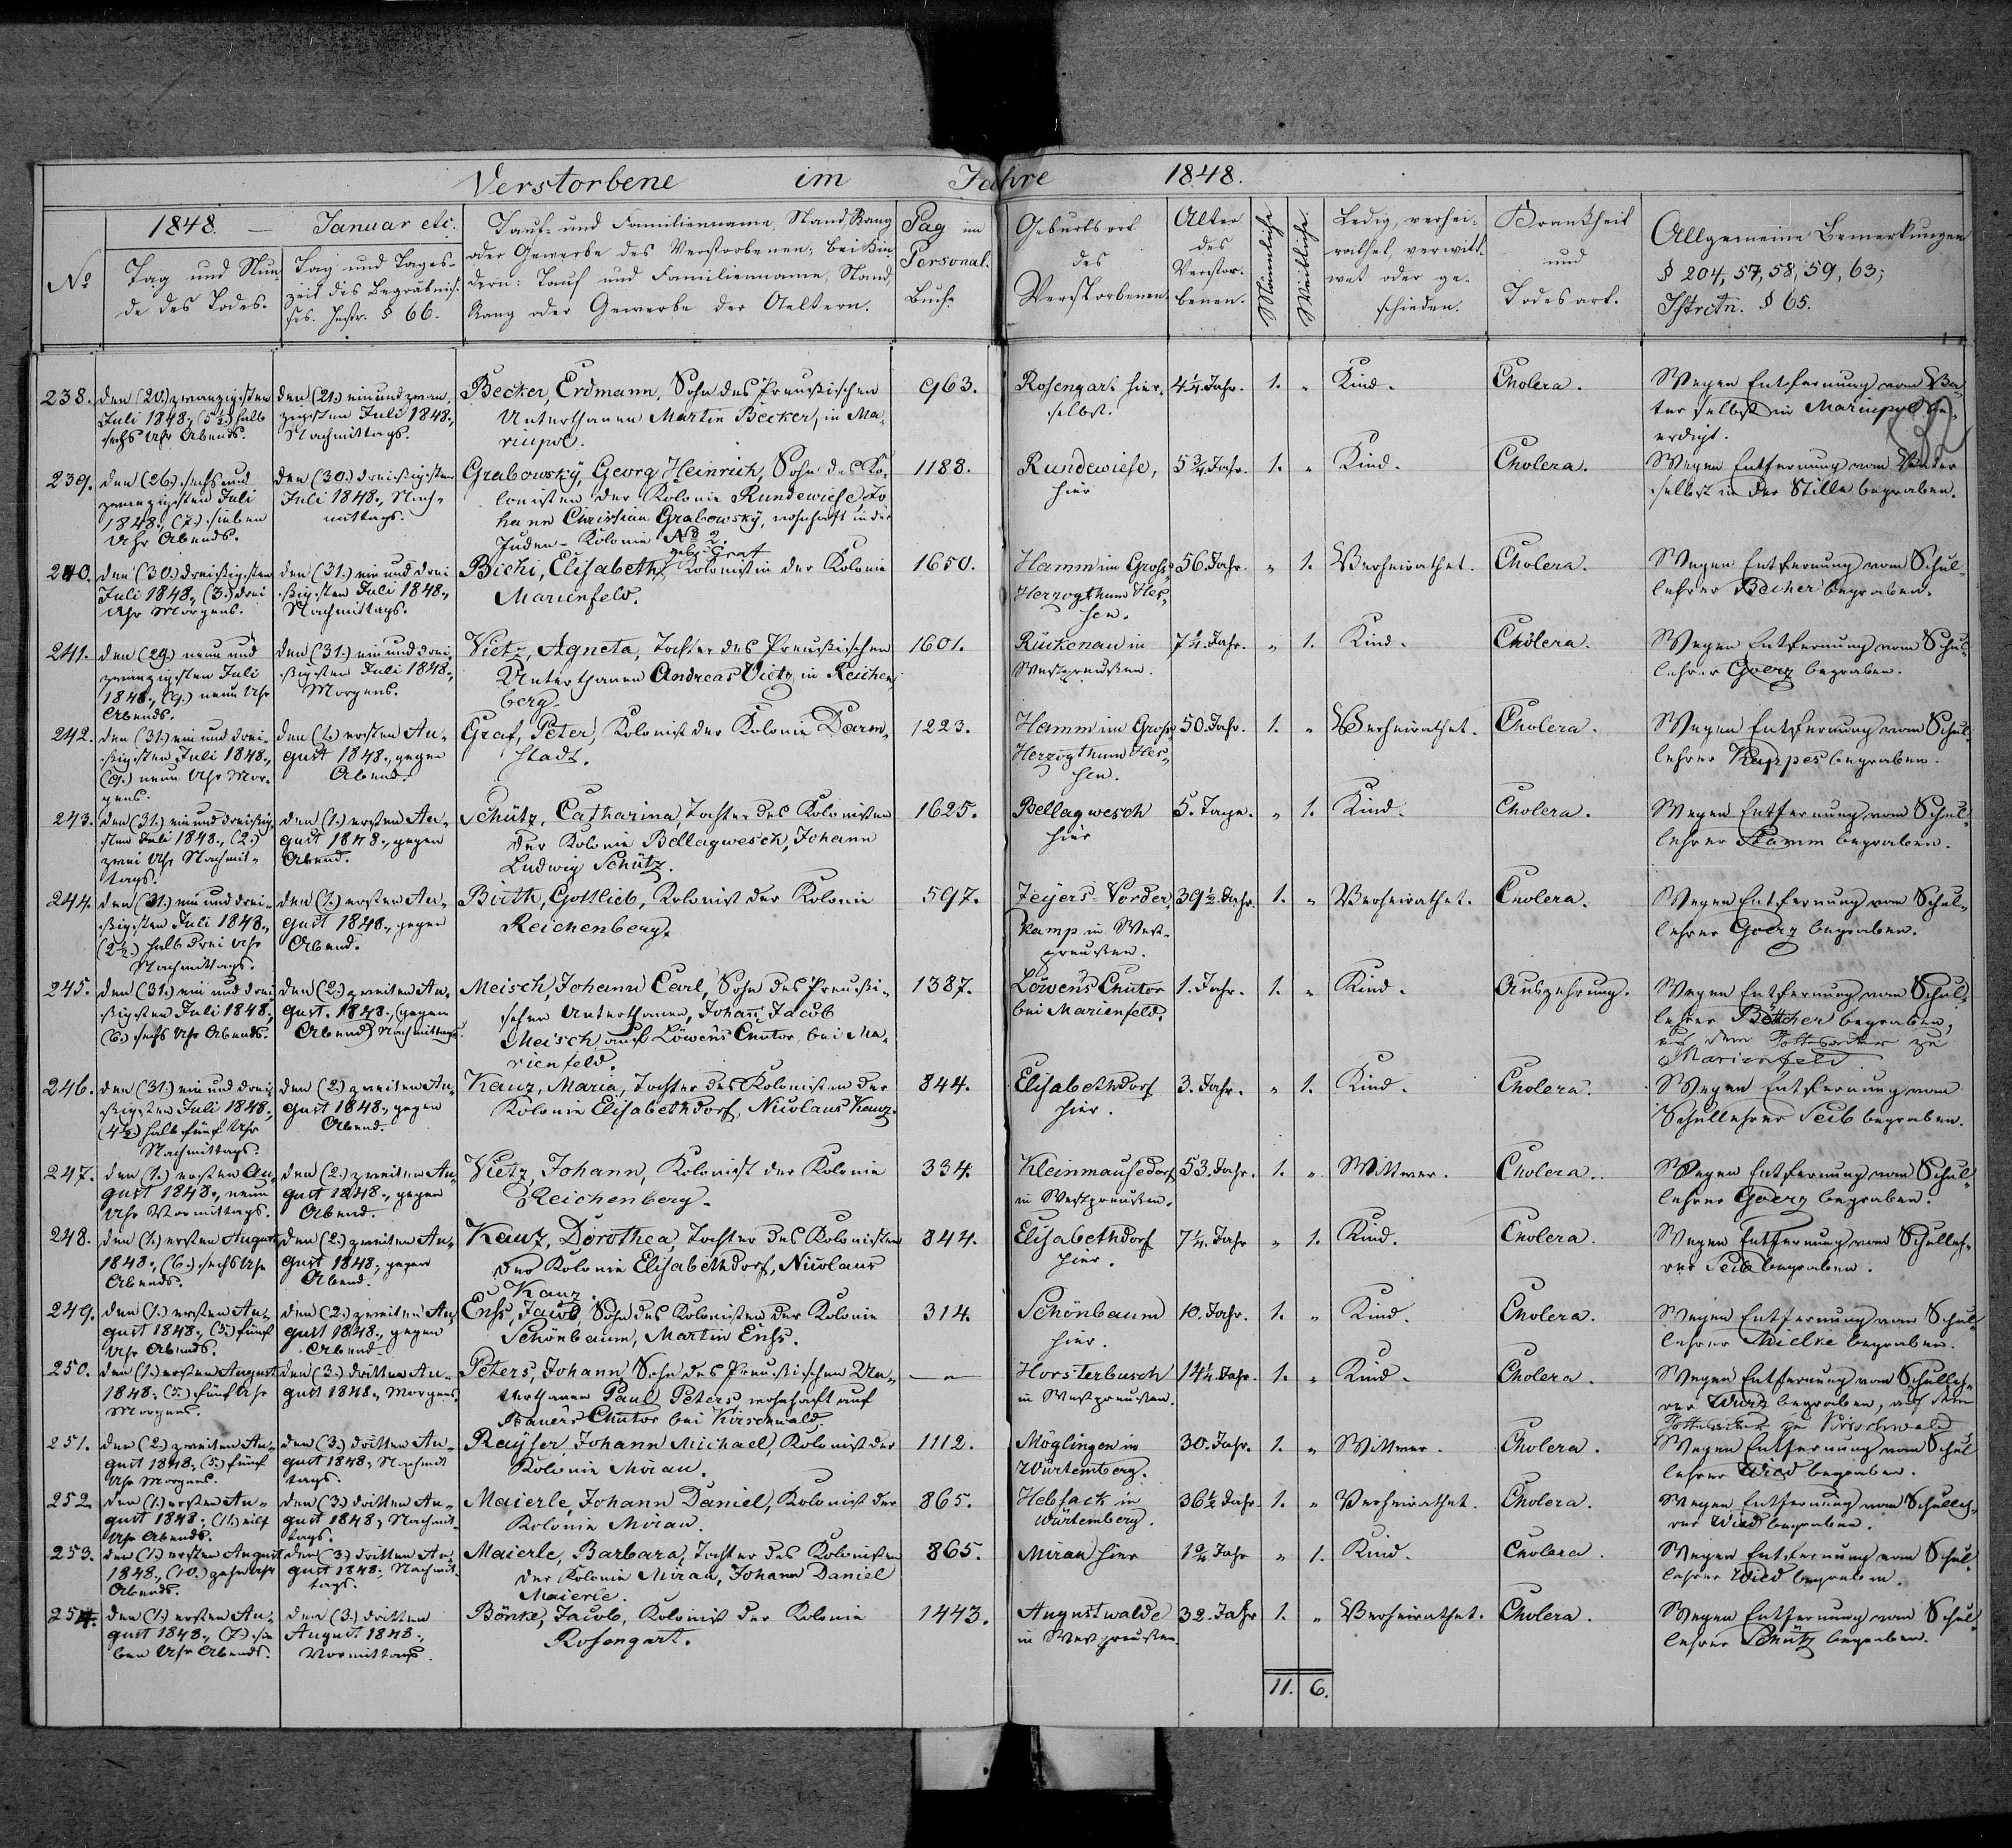 Verstorbene im Jahre 1848.
No
1848 — Januar etc.
Tag und Stun-
de des Todes.
Tag und Tages-
zeit des Begräbnis-
ses. Instr. § 66.
Tauf- und Familienname, Stand, Rang
oder Gewerbe des Verstorbenen; bei Kin-
dern: Tauf und Familienname, Stand,
Rang oder Gewerbe der Aeltern.
Pag im
Personal.
Buch.
Geburtsort
des
Verstorbenen.
Alter
des
Verstor-
benen.
Männliche
Weibliche
Ledig, verhei-
rathet, verwitt-
wet oder ge-
schieden.
Krankheit
und
Todesart.
Allgemeine Bemerkungen
§ 204, 57, 58, 59, 63;
Istrctn. § 65.
238.
den (20.) zwanzigsten
Juli 1848., (5½) halb
sechs Uhr Abends.
den (21.) ein und zwan-
zigsten Juli 1848.,
Nachmittags.
Becker, Erdmann, Sohn des Preußischen
Unterthanen Martin Becker, in Ma-
riupol.
963.
Rosengart hier-
selbst.
4¼ Jahr.
1.
„
Kind.
Cholera.
Wegen Entfernung vom Va-
ter selbst in Mariupol be-
erdigt.
239.
den (26.) sechs und
zwanzigsten Juli
1848., (7.) sieben
Uhr Abends.
den (30.) dreißigsten
Juli 1848., Nach-
mittags.
Grabowsky, Georg Heinrich, Sohn des Ko-
lonisten der Kolonie Rundewiese Jo-
hann Christian Grabowsky, wohnhaft in der
Juden-Kolonie No 2.
1188.
Rundewiese,
hier
5¾ Jahr.
1.
„
Kind.
Cholera.
Wegen Entfernung vom Vater
selbst in der Stille begraben.
240.
den (30.) dreißigsten
Juli 1848., (3.) drei
Uhr Morgens.
den (31.) ein und drei
ßigsten Juli 1848.,
Nachmittags.
geb: Graf
Bicki, Elisabeth, Kolonistin der Kolonie
Marienfeld.
1650.
Hamm im Groß-
Herzogthum Hes-
sen.
56. Jahr.
„
1.
Verheirathet.
Cholera.
Wegen Entfernung vom Schul-
lehrer Becher begraben.
241.
den (29.) neun und
zwanzigsten Juli
1848., (9.) neun Uhr
Abends.
den (31.) ein und drei-
ßigsten Juli 1848.,
Morgens.
Vietz, Agneta, Tochter des Preußischen
Unterthanen Andreas Vietz in Reichen-
berg.
1601.
Rückenau in
Westpreußen.
7¼ Jahr.
„
1.
Kind.
Cholera.
Wegen Entfernung vom Schul-
lehrer Goerz begraben.
242.
den (31.) ein und drei-
ßigsten Juli 1848.,
(9.) neun Uhr Mor-
gens.
den (1.) ersten Au-
gust 1848., gegen
Abend.
Graf, Peter, Kolonist der Kolonie Darm-
stadt.
1223.
Hamm im Groß-
Herzogthum Hes-
sen.
50. Jahr.
1.
„
Verheirathet.
Cholera.
Wegen Entfernung vom Schul-
lehrer Kappes begraben.
243.
den (31.) ein und dreißig-
sten Juli 1848., (2.)
zwei Uhr Nachmit-
tags.
den (1.) ersten Au-
gust 1848., gegen
Abend.
Schütz, Catharina, Tochter des Kolonisten
der Kolonie Bellagwesch, Johann
Ludwig Schütz.
1625.
Bellagwesch
hier
5. Tage.
„
1.
Kind.
Cholera.
Wegen Entfernung vom Schul-
lehrer Stamm begraben.
244.
den (31.) ein und drei-
ßigsten Juli 1848.,
(2½.) halb drei Uhr
Nachmittags.
den (1.) ersten Au-
gust 1848., gegen
Abend.
Birth, Gottlieb, Kolonist der Kolonie
Reichenberg.
597.
Zeyers-Vorder-
kamp in West-
preußen.
39½. Jahr.
1.
„
Verheirathet.
Cholera.
Wegen Entfernung vom Schul-
lehrer Goerz begraben.
245.
den (31.) ein und drei-
ßigsten Juli 1848.,
(6.) sechs Uhr Abends.
den (2.) zweiten Au-
gust. 1848. (gegen
Abend) Nachmittags.
Meisch, Johann Carl, Sohn des Preußi-
schen Unterthanen, Johann Jacob
Meisch, auf Löwen's Chutor bei Ma-
rienfeld.
1387.
Löwen's Chutor
bei Marienfeld.
1. Jahr.
1.
„
Kind.
Auszehrung.
Wegen Entfernung vom Schul-
lehrer Bettcher begraben,
auf dem Gottesacker zu
Marienfeld
246.
den (31.) ein und drei-
ßigsten Juli 1848.,
(4½.) halb fünf Uhr
Nachmittags.
den (2.) zweiten Au-
gust 1848., gegen
Abend.
Kauz, Maria, Tochter des Kolonisten der
Kolonie Elisabethdorf, Nicolaus Kauz.
844.
Elisabethdorf
hier.
3. Jahr.
„
1.
Kind.
Cholera.
Wegen Entfernung vom
Schullehrer Seib begraben.
247.
den (1.) ersten Au-
gust 1848., neun
Uhr Vormittags.
den (2.) zweiten Au-
gust 1848., gegen
Abend.
Vietz, Johann, Kolonist der Kolonie
Reichenberg.
334.
Kleinmausdorf
in Westpreußen.
53. Jahr.
1.
„
Wittwer.
Cholera.
Wegen Entfernung vom Schul-
lehrer Goerz begraben.
248.
den (1.) ersten August
1848., (6.) sechs Uhr
Abends.
den (2.) zweiten Au-
gust 1848., gegen
Abend.
Kauz, Dorothea, Tochter des Kolonisten
der Kolonie Elisabethdorf, Nicolaus
Kauz.
844.
Elisabethdorf
hier.
7¼. Jahr
„
1.
Kind.
Cholera.
Wegen Entfernung vom Schulleh-
rer Seib begraben.
249.
den (1.) ersten Au-
gust 1848., (5.) fünf
Uhr Abends.
den (2.) zweiten Au-
gust 1848., gegen
Abend.
Enß, Jacob, Sohn des Kolonisten der Kolonie
Schönbaum, Martin Enß.
314.
Schönbaum
hier.
10. Jahr.
1.
„
Kind.
Cholera.
Wegen Entfernung vom Schul-
lehrer Mielke begraben.
250.
den (1.) ersten August
1848., (5.) fünf Uhr
Morgens.
den (3.) dritten Au-
gust 1848., Morgens.
Peters, Johann, Sohn des Preußischen Un-
terthanen Paul Peters, wohnhaft auf
Bauer's Chutor bei Kirschwald.
— „ —
Horsterbusch
in Westpreußen.
14¼. Jahr.
1.
„
Kind.
Cholera.
Wegen Entfernung vom Schulleh-
rer Wurz begraben, auf dem
Gottesacker zu Kirschwald
251.
den (2.) zweiten Au-
gust 1848., (5.) fünf
Uhr Morgens.
den (3.) dritten Au-
gust 1848., Nachmit
tags.
Rayser, Johann Michael, Kolonist der
Kolonie Mirau.
1112.
Möglingen in
Würtemberg.
30. Jahr.
1.
„
Wittwer.
Cholera.
Wegen Entfernung vom Schul
lehrer Wied begraben.
252.
den (1.) ersten Au-
gust 1848., (11.) eilf
Uhr Abends.
den (3.) dritten Au-
gust 1848., Nachmit-
tags.
Maierle, Johann Daniel, Kolonist der
Kolonie Mirau.
865.
Hebsack in
Würtemberg.
36½ Jahr.
1.
„
Verheirathet.
Cholera.
Wegen Entfernung vom Schulleh-
rer Wied begraben.
253.
den (1.) ersten August
1848., (10.) zehn Uhr
Abends.
den (3.) dritten Au-
gust 1848. Nachmit-
tags.
Maierle, Barbara, Tochter des Kolonisten
der Kolonie Mirau, Johann Daniel
Maierle.
865.
Mirau hier
Jahr
„
1.
Kind.
Cholera.
Wegen Entfernung vom Schul-
lehrer Wied begraben.
254.
den (1.) ersten Au-
gust 1848., (7.) sie
ben Uhr Abends.
den (3.) dritten
August 1848.,
Vormittags.
Bönke, Jacob, Kolonist der Kolonie
Rosengart.
1443.
Augustwalde
in Westpreußen.
32. Jahr
1.
„
Verheirathet.
Cholera.
Wegen Entfernung vom Schul-
lehrer Schütz begraben.
11. 6.